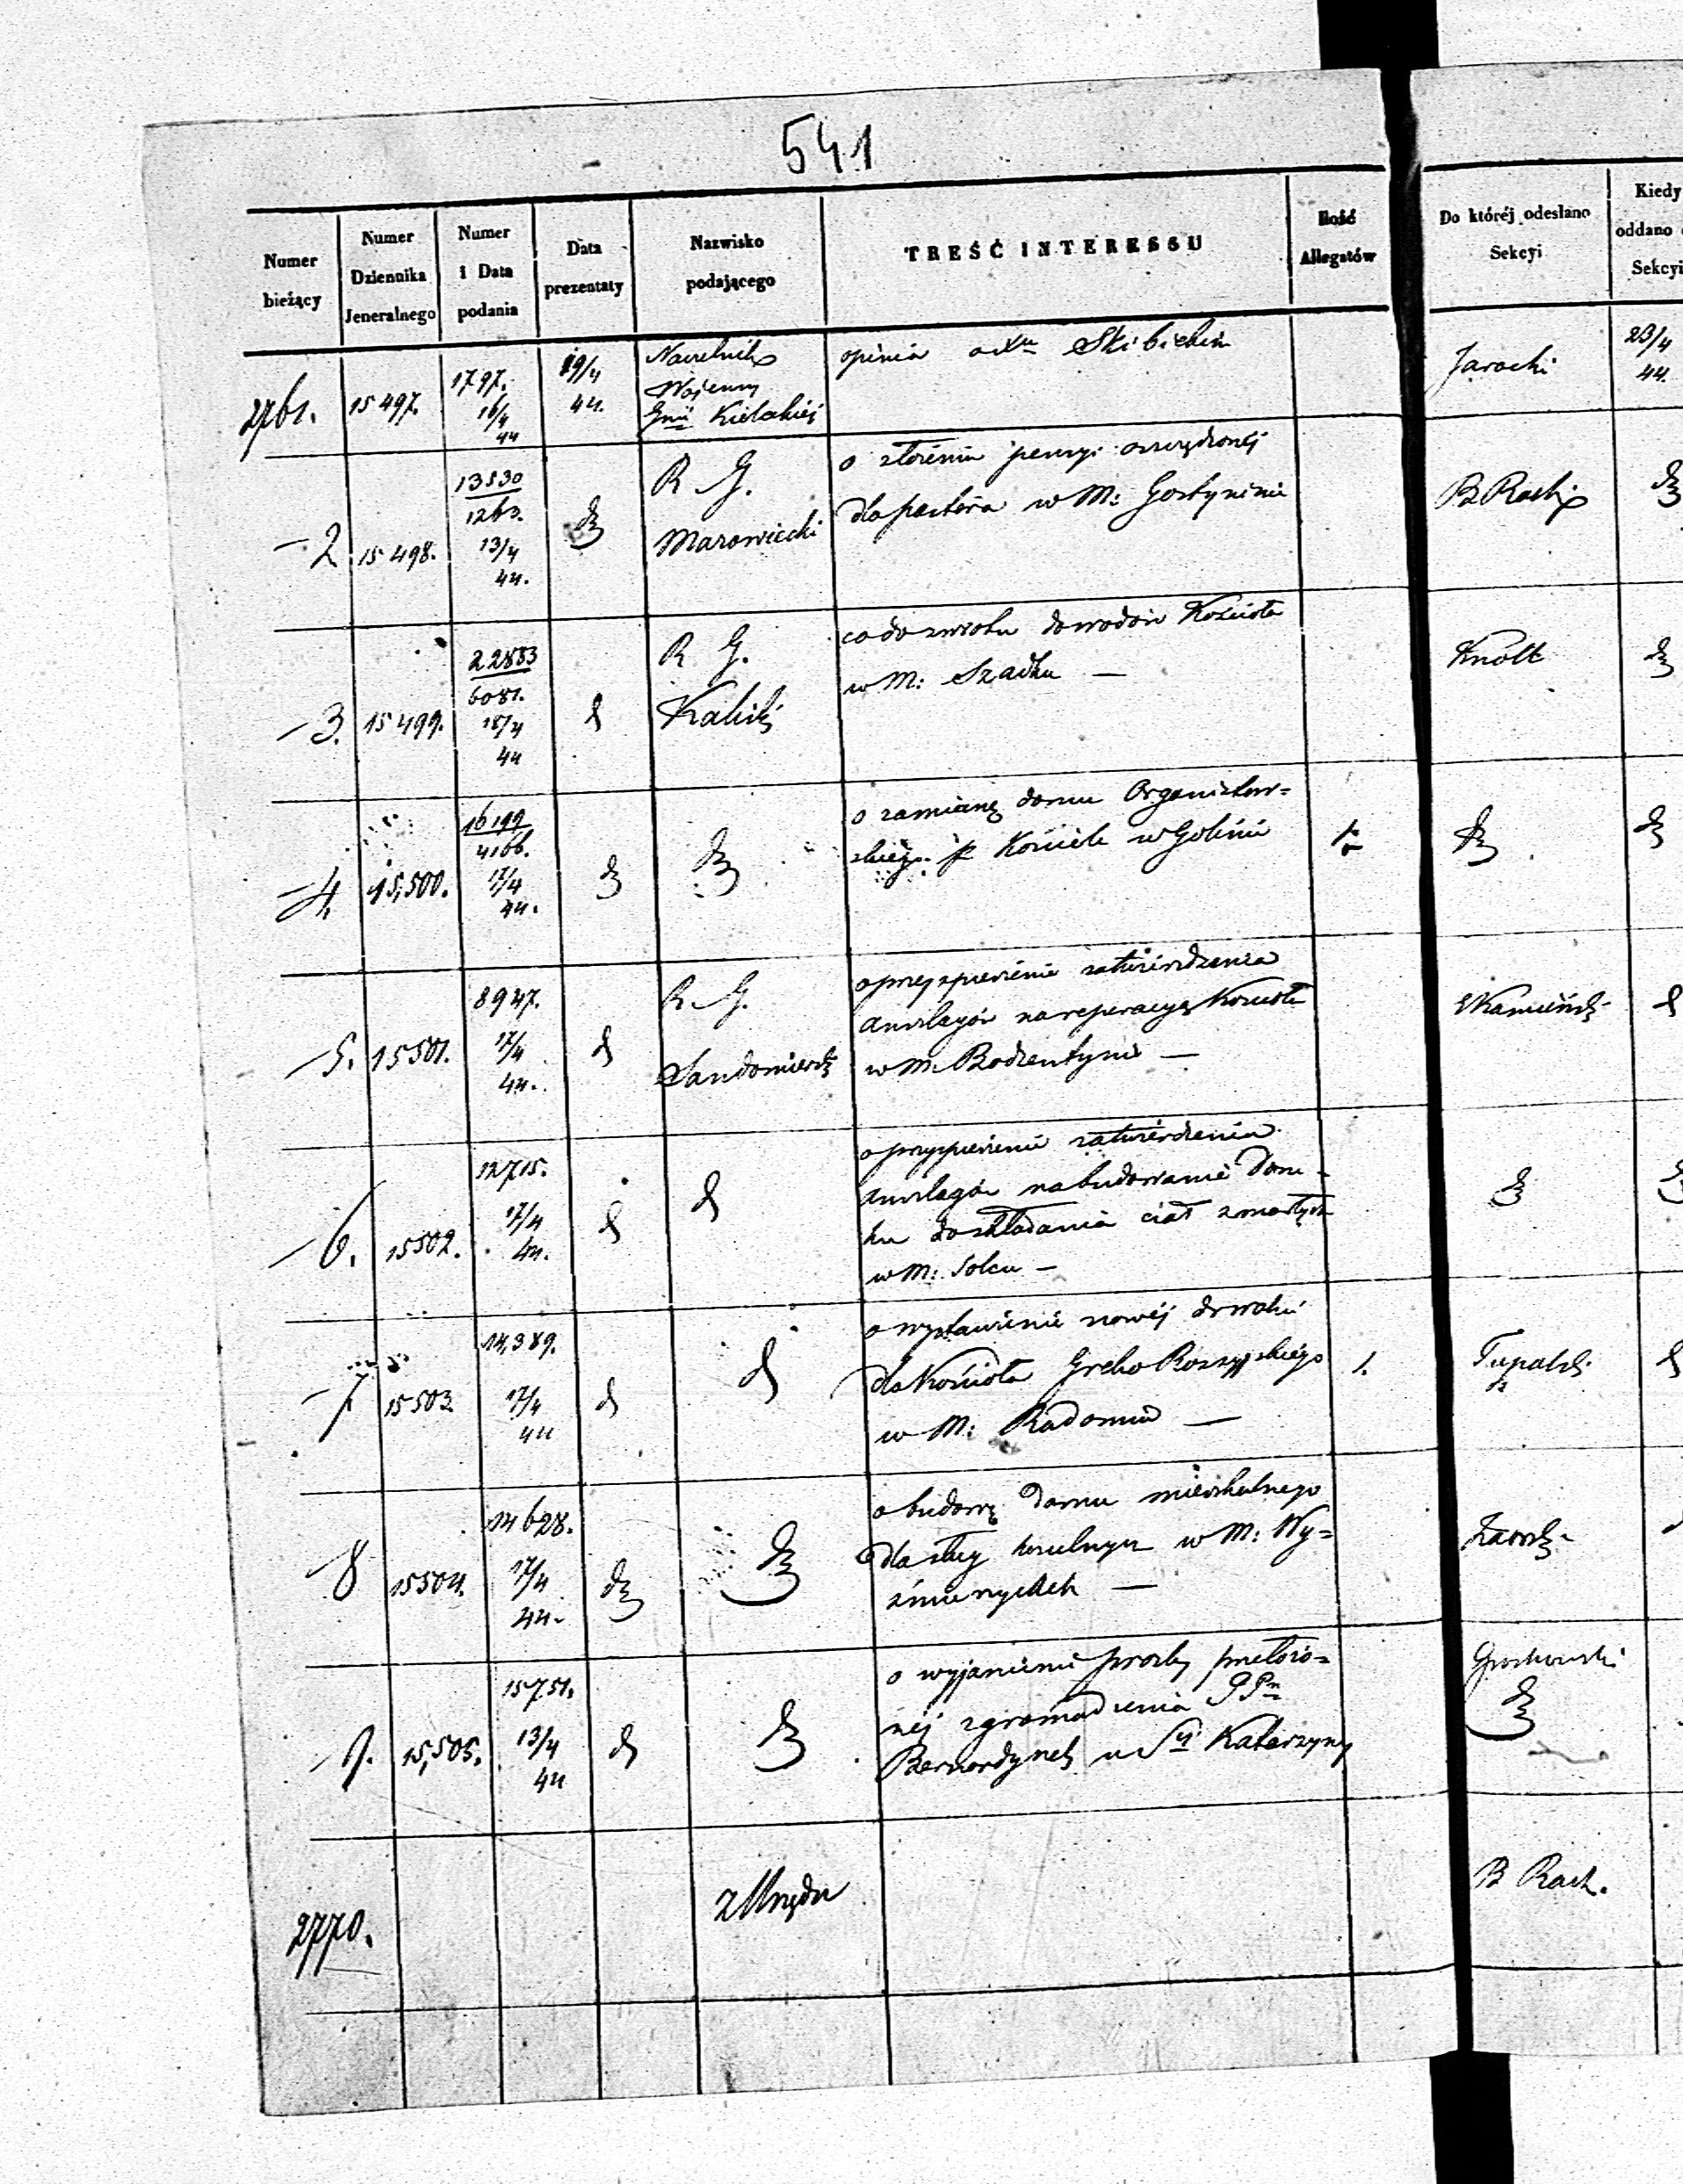 541
Numer bieżący
Numer Dziennika Jeneralnego
Numer i Data podania
Data prezentaty
Nazwisko podającego
TREŚĆ INTERESSU
Ilość Allegatów
Do któréj odesłano Sekcyi
Kiedy oddano
Sekcyi
2761. 15497. 1797. 16/4 44 19/4 44.
Naczelnik
Wojenny
Gnii Kielckiéj
opinia o Xu
Jarocki 23/4 44.
2 15498. 13530 1263. 13/4 44. dto
R G.
Mazowiecki
o złożeniu pensyi
dla pastora w M: Gostyninie
B Rach dto
3. 15499. 22883 6081. 18/4 44 d
R G.
Kaliski
co do zwrotu dowodów Kościoła
w M: Szadku —
Knolt dto
4. 15,500. 16199 4166. 17/4 44. dto dto
o zamianę domu Organistow=
skiego p Kościele w Golinie
1. dto dto
5. 15501. 8947. 17/4 44. d
R. G.
Sandomierski
o przyspieszenie zatwierdzenia
anszlagów na reperacyą Kościoła
w M. Bodzentynie —
Kamieński d
6. 15502. 12715. 17/4 44. d d
o przyspieszenie zatwierdzenia
anszlagów na budowanie Dom-
ku do składania ciał zmarłych
w M: Solcu —
dto
7 15503. 14,389. 17/4 44 d d
o wystawienie nowéj
dla Kościoła Greko Rossyjskiego
w M: Radomiu —
1. Tupalski d
8 15504. 14628. 17/4 44. dto dto
o budowę Domu mieszkalnego
dla sług w M: Wy=
śmierzycach —
9. 15,505. 15751. 13/4 44 d dto
o wyjaśnienie prośby przełożo=
néj zgromadzenia PPn
Bernardynek u Sty Katarzyny
Grochowski
dto
2770.
z Urzędu
B Rach.